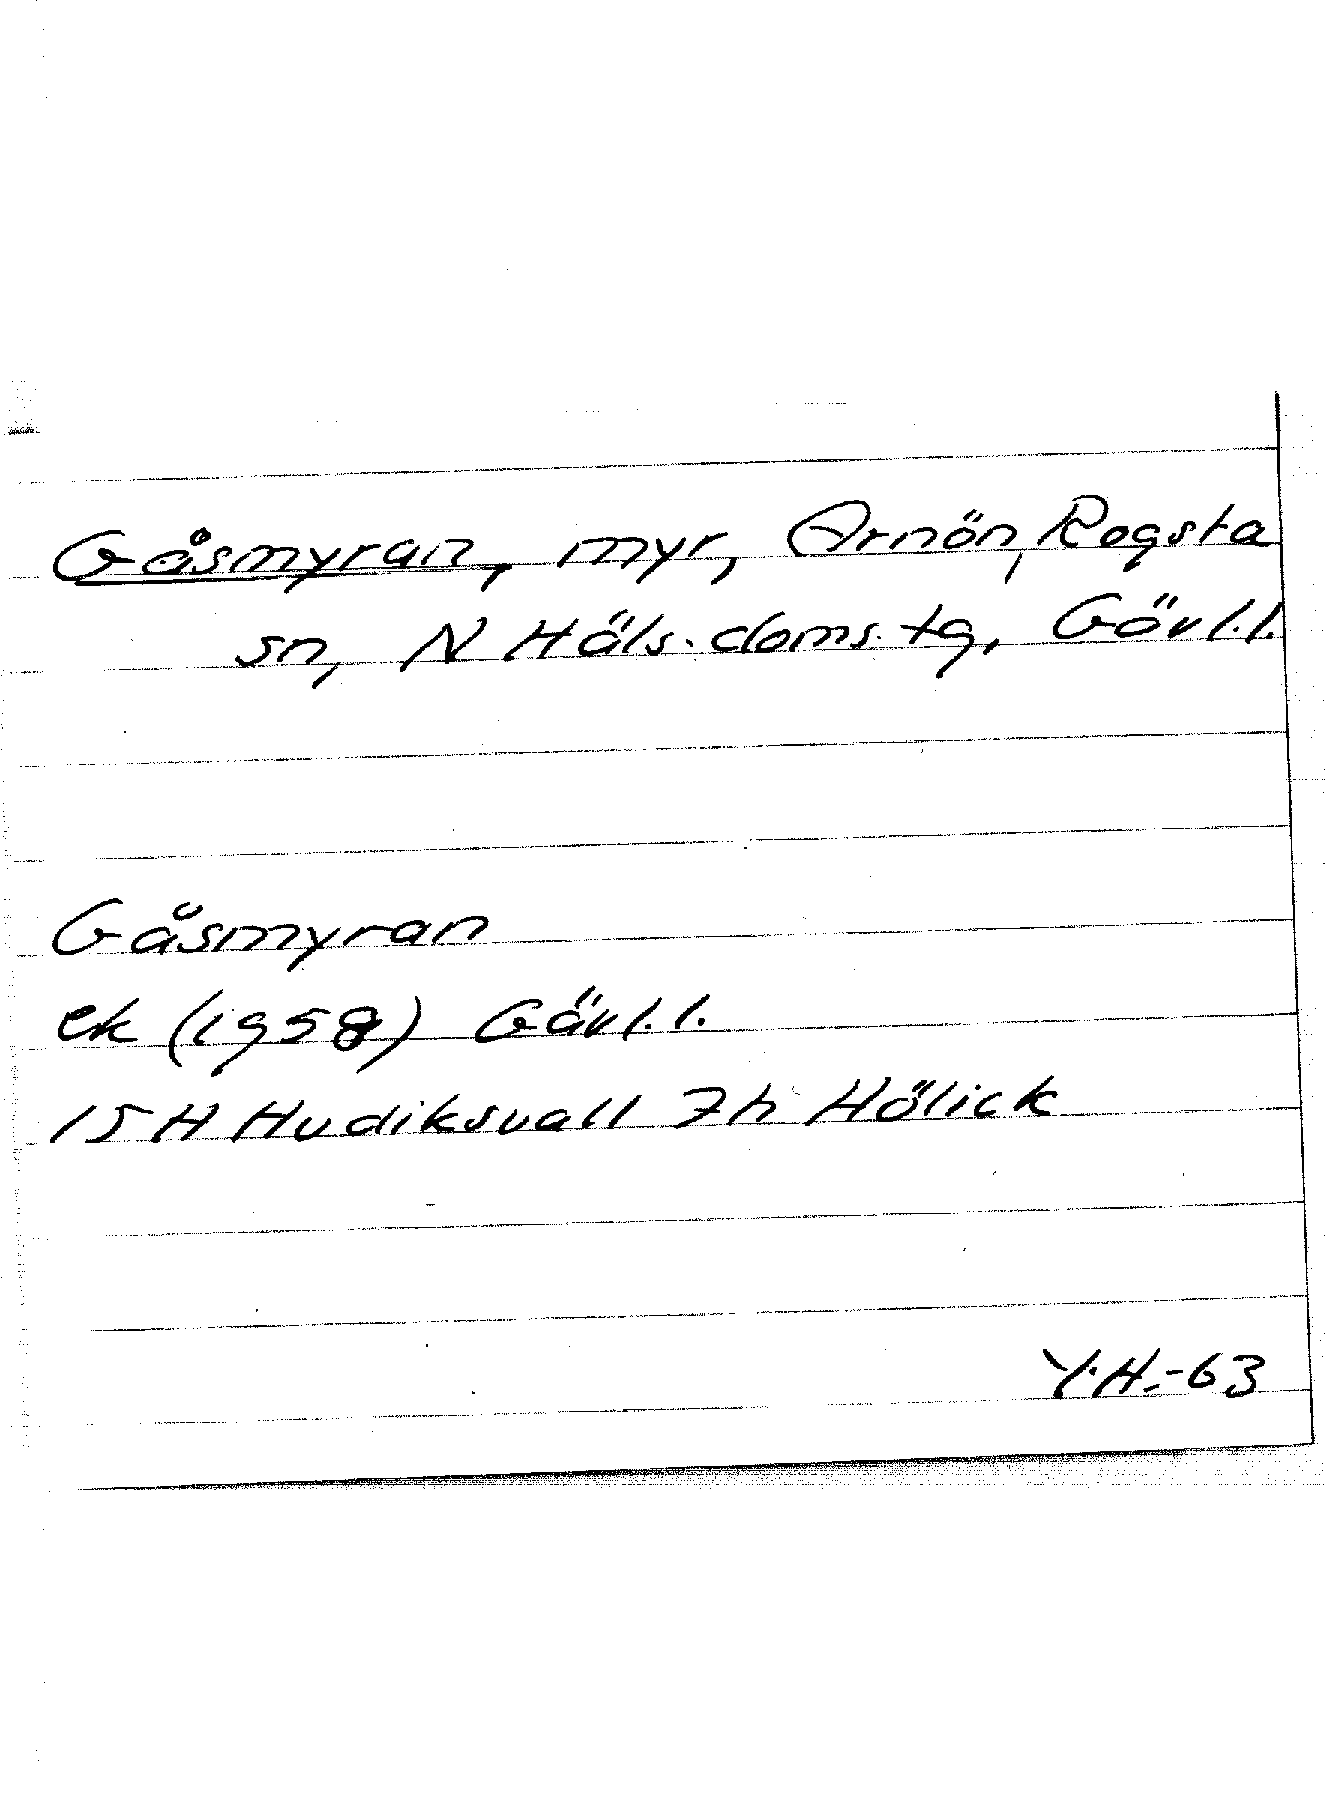 Gåsmyran, myr, Arnön, Rogsta
sn, N Häls. doms. tg, Gävl.l.
Gåsmyran
ek (1958) Gävl.l.
15H Hudiksvall 7h Hölick
Y.H.-63